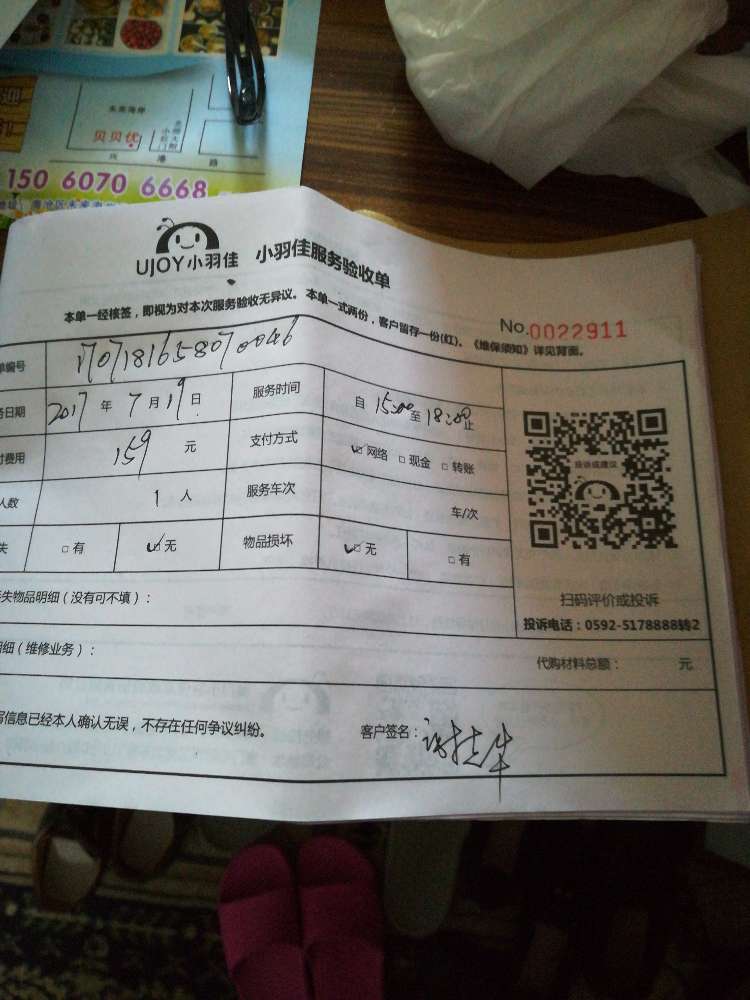 东南海岸
贝贝优
兴港路
150 6070 6668
UJOY小羽佳 小羽佳服务验收单
本单一经核签，即视为对本次服务验收无异议。本单一式两份，客户留存一份(红)。《维保须知》详见背面。
No.0022911
单编号 1707181658070046
务日期 2017 年 7 月 19 日 服务时间 自 15:00 至 18:00 止
付费用 159 元 支付方式 网络 现金 转账
人数 1 人 服务车次 车/次
失 有 无 物品损坏 无 有
投诉或建议
扫码评价或投诉
投诉电话：0592-5178888转2
失物品明细（没有可不填）：
明细（维修业务）：
代购材料总额： 元
写信息已经本人确认无误，不存在任何争议纠纷。 客户签名：